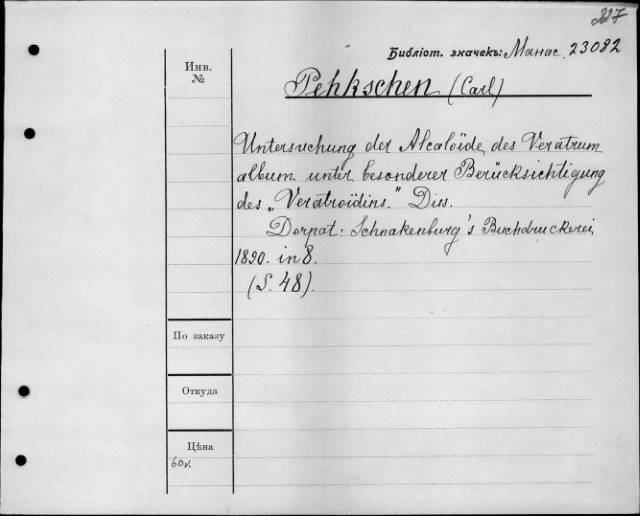 227
Библіот. значекъ: Манас. 23082
Инв.
№
Pehkschen (Carl)
Untersuchung der Alcaloïde des Veratrum
album unter besonderer Berücksichtigung
des „Veratroïdins." Diss.
Dorpat: Schnakenburg's Buchdruckerei,
1890. in 8.
(S. 48).
По заказу
Откуда
Цѣна
60к.